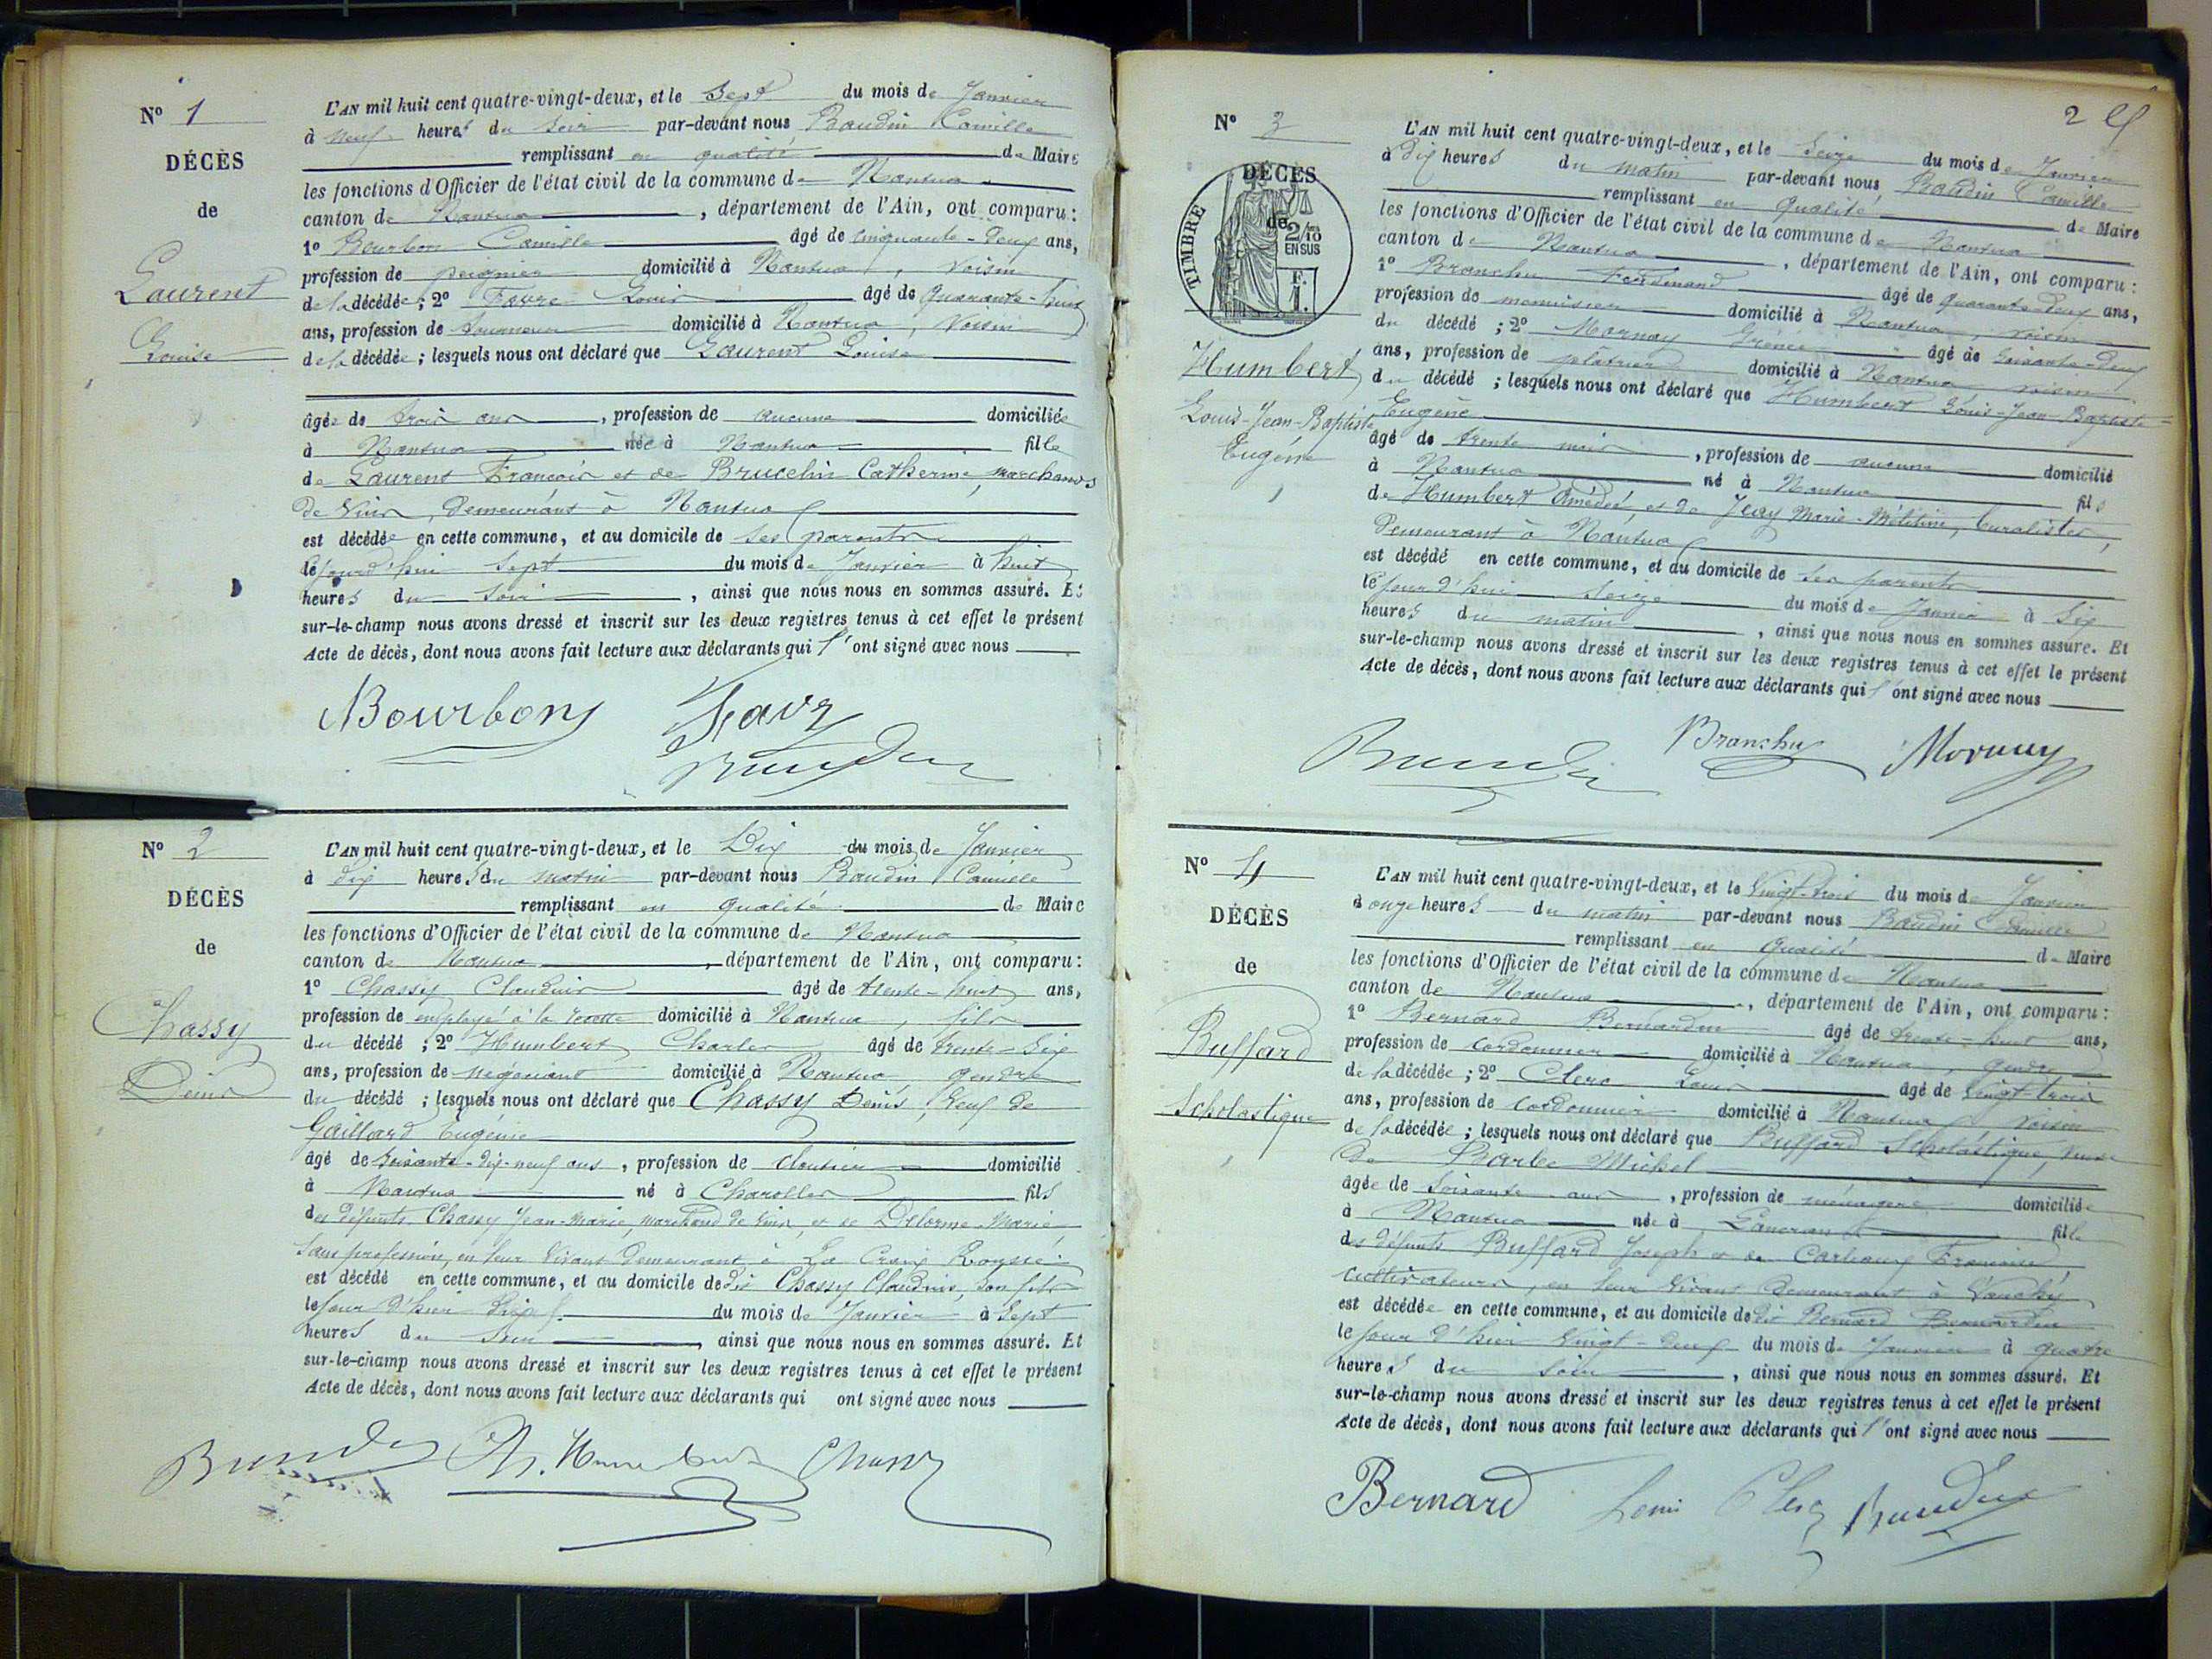 N° 1
DÉCÈS
de
Laurent
Louise
L'AN mil huit cent quatre-vingt-deux, et le Sept du mois de Janvier
à neuf heures du soir par-devant nous Baudin Camille
remplissant en qualité de Maire
les fonctions d'Officier de l'état civil de la commune de Nantua
canton de Nantua, département de l'Ain, ont comparu :
1° Bourbon Camille âgé de cinquante-deux ans,
profession de peignier domicilié à Nantua, voisin
de la décédée ; 2° Favre Louis âgé de quarante-huit
ans, profession de tourneur domicilié à Nantua, voisin
de la décédée ; lesquels nous ont déclaré que Laurent Louise
âgée de trois ans, profession de aucune domiciliée
à Nantua née à Nantua fille
de Laurent François et de Brucelin Catherine, marchands
de Vins, demeurant à Nantua
est décédée en cette commune, et au domicile de ses parents
le jourd'hui sept du mois de Janvier à huit
heures du soir, ainsi que nous nous en sommes assuré. Et
sur-le-champ nous avons dressé et inscrit sur les deux registres tenus à cet effet le présent
Acte de décès, dont nous avons fait lecture aux déclarants qui l'ont signé avec nous
Bourbon Favre
Baudin
N° 2
DÉCÈS
de
Chassy
Denis
L'AN mil huit cent quatre-vingt-deux, et le Dix du mois de Janvier
à dix heures du matin par-devant nous Baudin Camille
remplissant en qualité de Maire
les fonctions d'Officier de l'état civil de la commune de Nantua
canton de Nantua, département de l'Ain, ont comparu :
1° Chassy Claudius âgé de trente-huit ans,
profession de employé à la recette domicilié à Nantua, fils
du décédé ; 2° Humbert Charles âgé de trente-six
ans, profession de négociant domicilié à Nantua gendre
du décédé ; lesquels nous ont déclaré que Chassy Denis, veuf de
Gaillard Eugénie
âgé de soixante-dix-neuf ans, profession de cloutier domicilié
à Nantua né à Charolles fils
des défunts Chassy Jean-Marie, marchand de vins, et de Delorme Marie
sans profession, en leur vivant demeurant à La Croix Rousse
est décédé en cette commune, et au domicile de dit Chassy Claudius, son fils
le jour d'hier du mois de Janvier à sept
heures du soir, ainsi que nous nous en sommes assuré. Et
sur-le-champ nous avons dressé et inscrit sur les deux registres tenus à cet effet le présent
Acte de décès, dont nous avons fait lecture aux déclarants qui ont signé avec nous
Baudin Ch. Humbert Chassy
2
N° 3
DÉCÈS
de
TIMBRE
2/10
EN SUS
F.
1.
Humbert
Louis-Jean-Baptiste
Eugène
L'AN mil huit cent quatre-vingt-deux, et le Seize du mois de Janvier
à dix heures du matin par-devant nous Baudin Camille
remplissant en qualité de Maire
les fonctions d'Officier de l'état civil de la commune de Nantua
canton de Nantua, département de l'Ain, ont comparu :
1° Branchu Ferdinand âgé de quarante-deux ans,
profession de menuisier domicilié à Nantua, voisin
du décédé ; 2° Mornay Irénée âgé de soixante-deux
ans, profession de plâtrier domicilié à Nantua voisin
du décédé ; lesquels nous ont déclaré que Humbert Louis-Jean-Baptiste-
Eugène
âgé de trente mois, profession de aucune domicilié
à Nantua né à Nantua fils
de Humbert Amédée, et de Jeay Marie-Mélitine, buralistes,
demeurant à Nantua
est décédé en cette commune, et au domicile de ses parents
le jour d'hui seize du mois de Janvier à six
heures du matin, ainsi que nous nous en sommes assuré. Et
sur-le-champ nous avons dressé et inscrit sur les deux registres tenus à cet effet le présent
Acte de décès, dont nous avons fait lecture aux déclarants qui l'ont signé avec nous
Baudin Branchu Mornay
N° 4
DÉCÈS
de
Buffard
Scholastique
L'AN mil huit cent quatre-vingt-deux, et le Vingt-trois du mois de Janvier
à onze heures du matin par-devant nous Baudin Camille
remplissant en qualité de Maire
les fonctions d'Officier de l'état civil de la commune de Nantua
canton de Nantua, département de l'Ain, ont comparu :
1° Bernard Bernardin âgé de trente-huit ans,
profession de cordonnier domicilié à Nantua, gendre
de la décédée ; 2° Clerc Louis âgé de vingt-trois
ans, profession de cordonnier domicilié à Nantua, voisin
de la décédée ; lesquels nous ont déclaré que Buffard Scholastique, veuve
de Barbe Michel
âgée de soixante ans, profession de ménagère domiciliée
à Nantua née à Lancrans fille
des défunts Buffard Joseph et de Françoise,
cultivateurs, en leur vivant demeurant à
est décédée en cette commune, et au domicile de dit Bernard Bernardin
le jour d'hier vingt-deux du mois de Janvier à quatre
heures du soir, ainsi que nous nous en sommes assuré. Et
sur-le-champ nous avons dressé et inscrit sur les deux registres tenus à cet effet le présent
Acte de décès, dont nous avons fait lecture aux déclarants qui l'ont signé avec nous
Bernard Louis Clerc Baudin